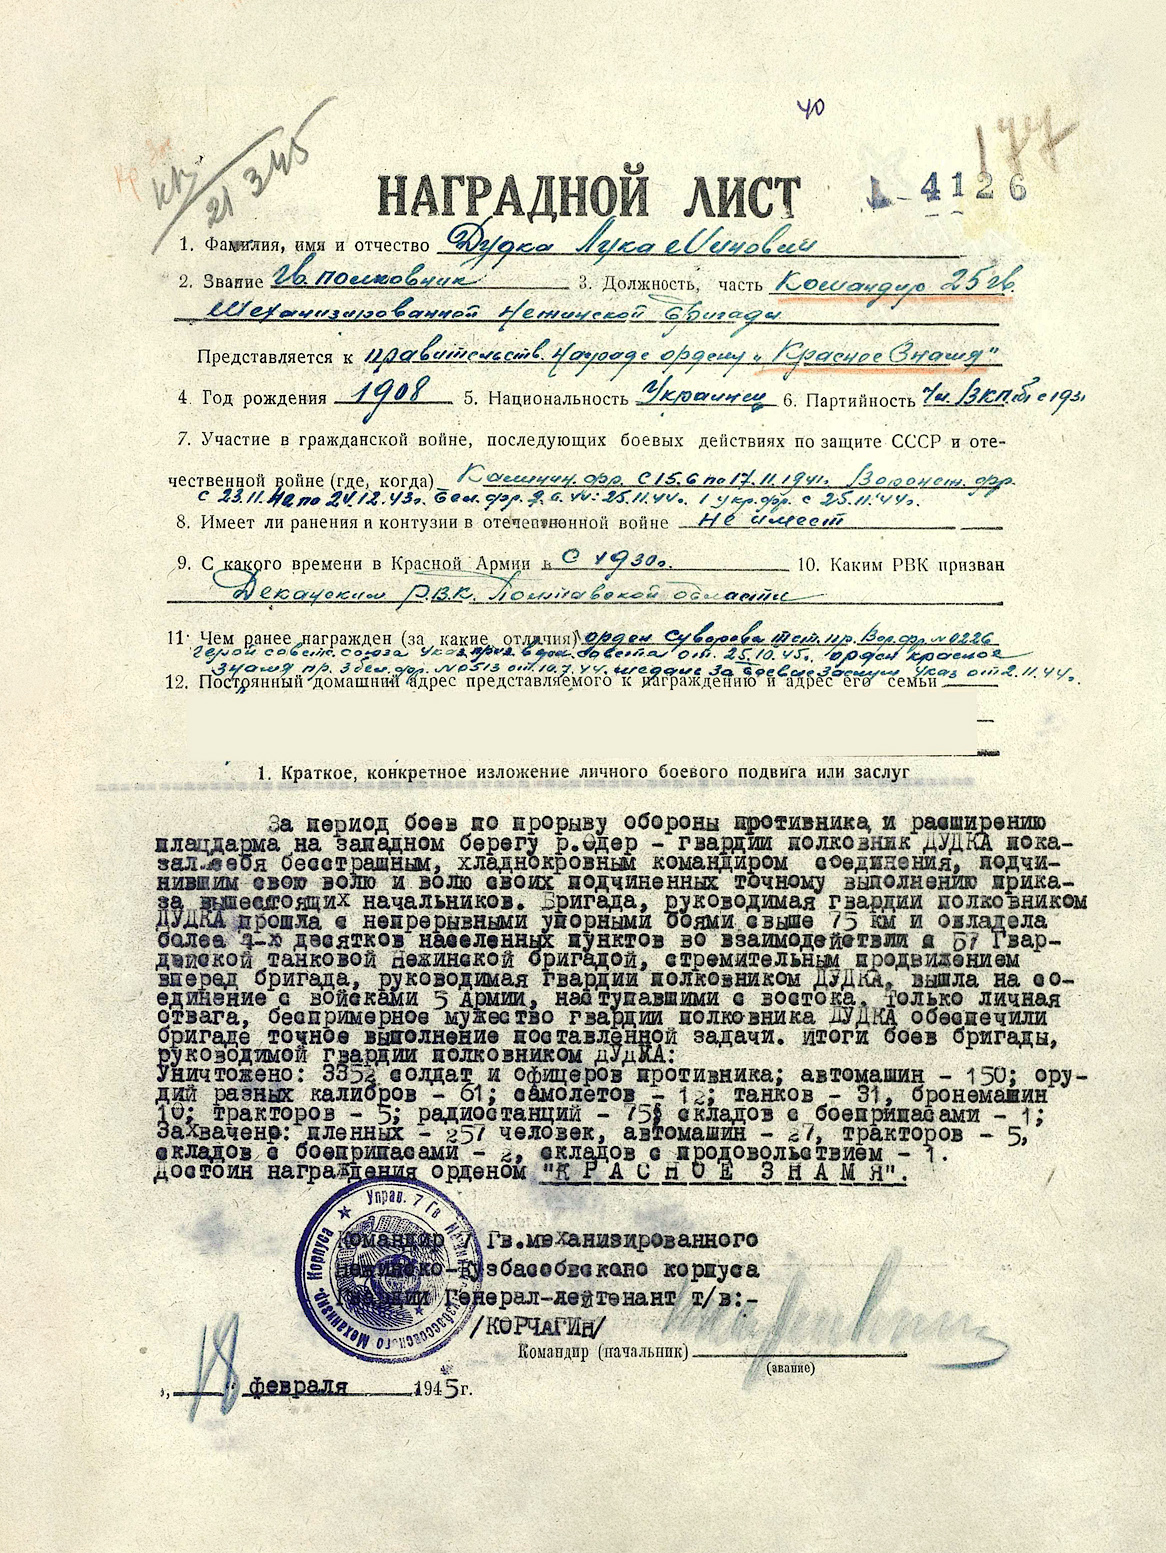 40
177
4126
КП/21 345
НАГРАДНОЙ ЛИСТ
1. Фамилия, имя и отчество Дудка Лука Минович
2. Звание Гв. полковник 3. Должность, часть Командир 25 гв.
Механизированной Нежинской бригады
Представляется к правительств. награде ордену „Красное Знамя"
4. Год рождения 1908 5. Национальность Украинец 6. Партийность Чл. ВКП(б) с 1931
7. Участие в гражданской войне, последующих боевых действиях по защите СССР и оте-
чественной войне (где, когда) Калинин. фр. с 15.6 по 17.11.1941. Воронеж. фр.
с 23.11.42 по 24.12.43г. Бел. фр. 9.6.44: 25.11.44г. 1 укр. фр. с 25.11.44г.
8. Имеет ли ранения и контузии в отечественной войне Не имеет
9. С какого времени в Красной Армии в С 1930г. 10. Каким РВК призван
Р.В.К. Полтавской области
11. Чем ранее награжден (за какие отличия) орден Суворова IIст. пр. Вор. фр. №0226
Герой советс. союза Указ през. верх. совета от. 25.10.45. орден красное
Знамя пр. 3 бел. фр. №0513 от 10.7.44. медаль за боевые заслуги Указ от 2.11.44г.
12. Постоянный домашний адрес представляемого к награждению и адрес его семьи
1. Краткое, конкретное изложение личного боевого подвига или заслуг
За период боев по прорыву обороны противника и расширению
плацдарма на западном берегу р.Одер - гвардии полковник ДУДКА пока-
зал себя бесстрашным, хладнокровным командиром соединения, подчи-
нившим свою волю и волю своих подчиненных точному выполнению прика-
за вышестоящих начальников. Бригада, руководимая гвардии полковником
ДУДКА прошла с непрерывными упорными боями свыше 75 км и овладела
более 4-х десятков населенных пунктов во взаимодействии с 57 Гвар-
дейской танковой Нежинской бригадой, стремительным продвижением
вперед бригада, руководимая гвардии полковником ДУДКА, вышла на со-
единение с войсками 5 Армии, наступавшими с востока. Только личная
отвага, беспримерное мужество гвардии полковника ДУДКА обеспечили
бригаде точное выполнение поставленной задачи. Итоги боев бригады,
руководимой гвардии полковником ДУДКА:
Уничтожено: 3352 солдат и офицеров противника; автомашин - 150; ору-
дий разных калибров - 61; самолетов - 12; танков - 31, бронемашин
10; тракторов - 5; радиостанций - 75; складов с боеприпасами - 1;
Захвачено: пленных - 257 человек, автомашин - 27, тракторов - 5,
складов с боеприпасами - 2, складов с продовольствием - 1.
Достоин награждения орденом "КРАСНОЕ ЗНАМЯ".
Управ. 7 Гв. Нежинско-Кузбассовского Механизир. Корпуса
Командир 7 Гв.механизированного
Нежинско-Кузбассовского корпуса
Гвардии Генерал-лейтенант т/в:-
/КОРЧАГИН/
Командир (начальник)
(звание)
„18" февраля 1945г.